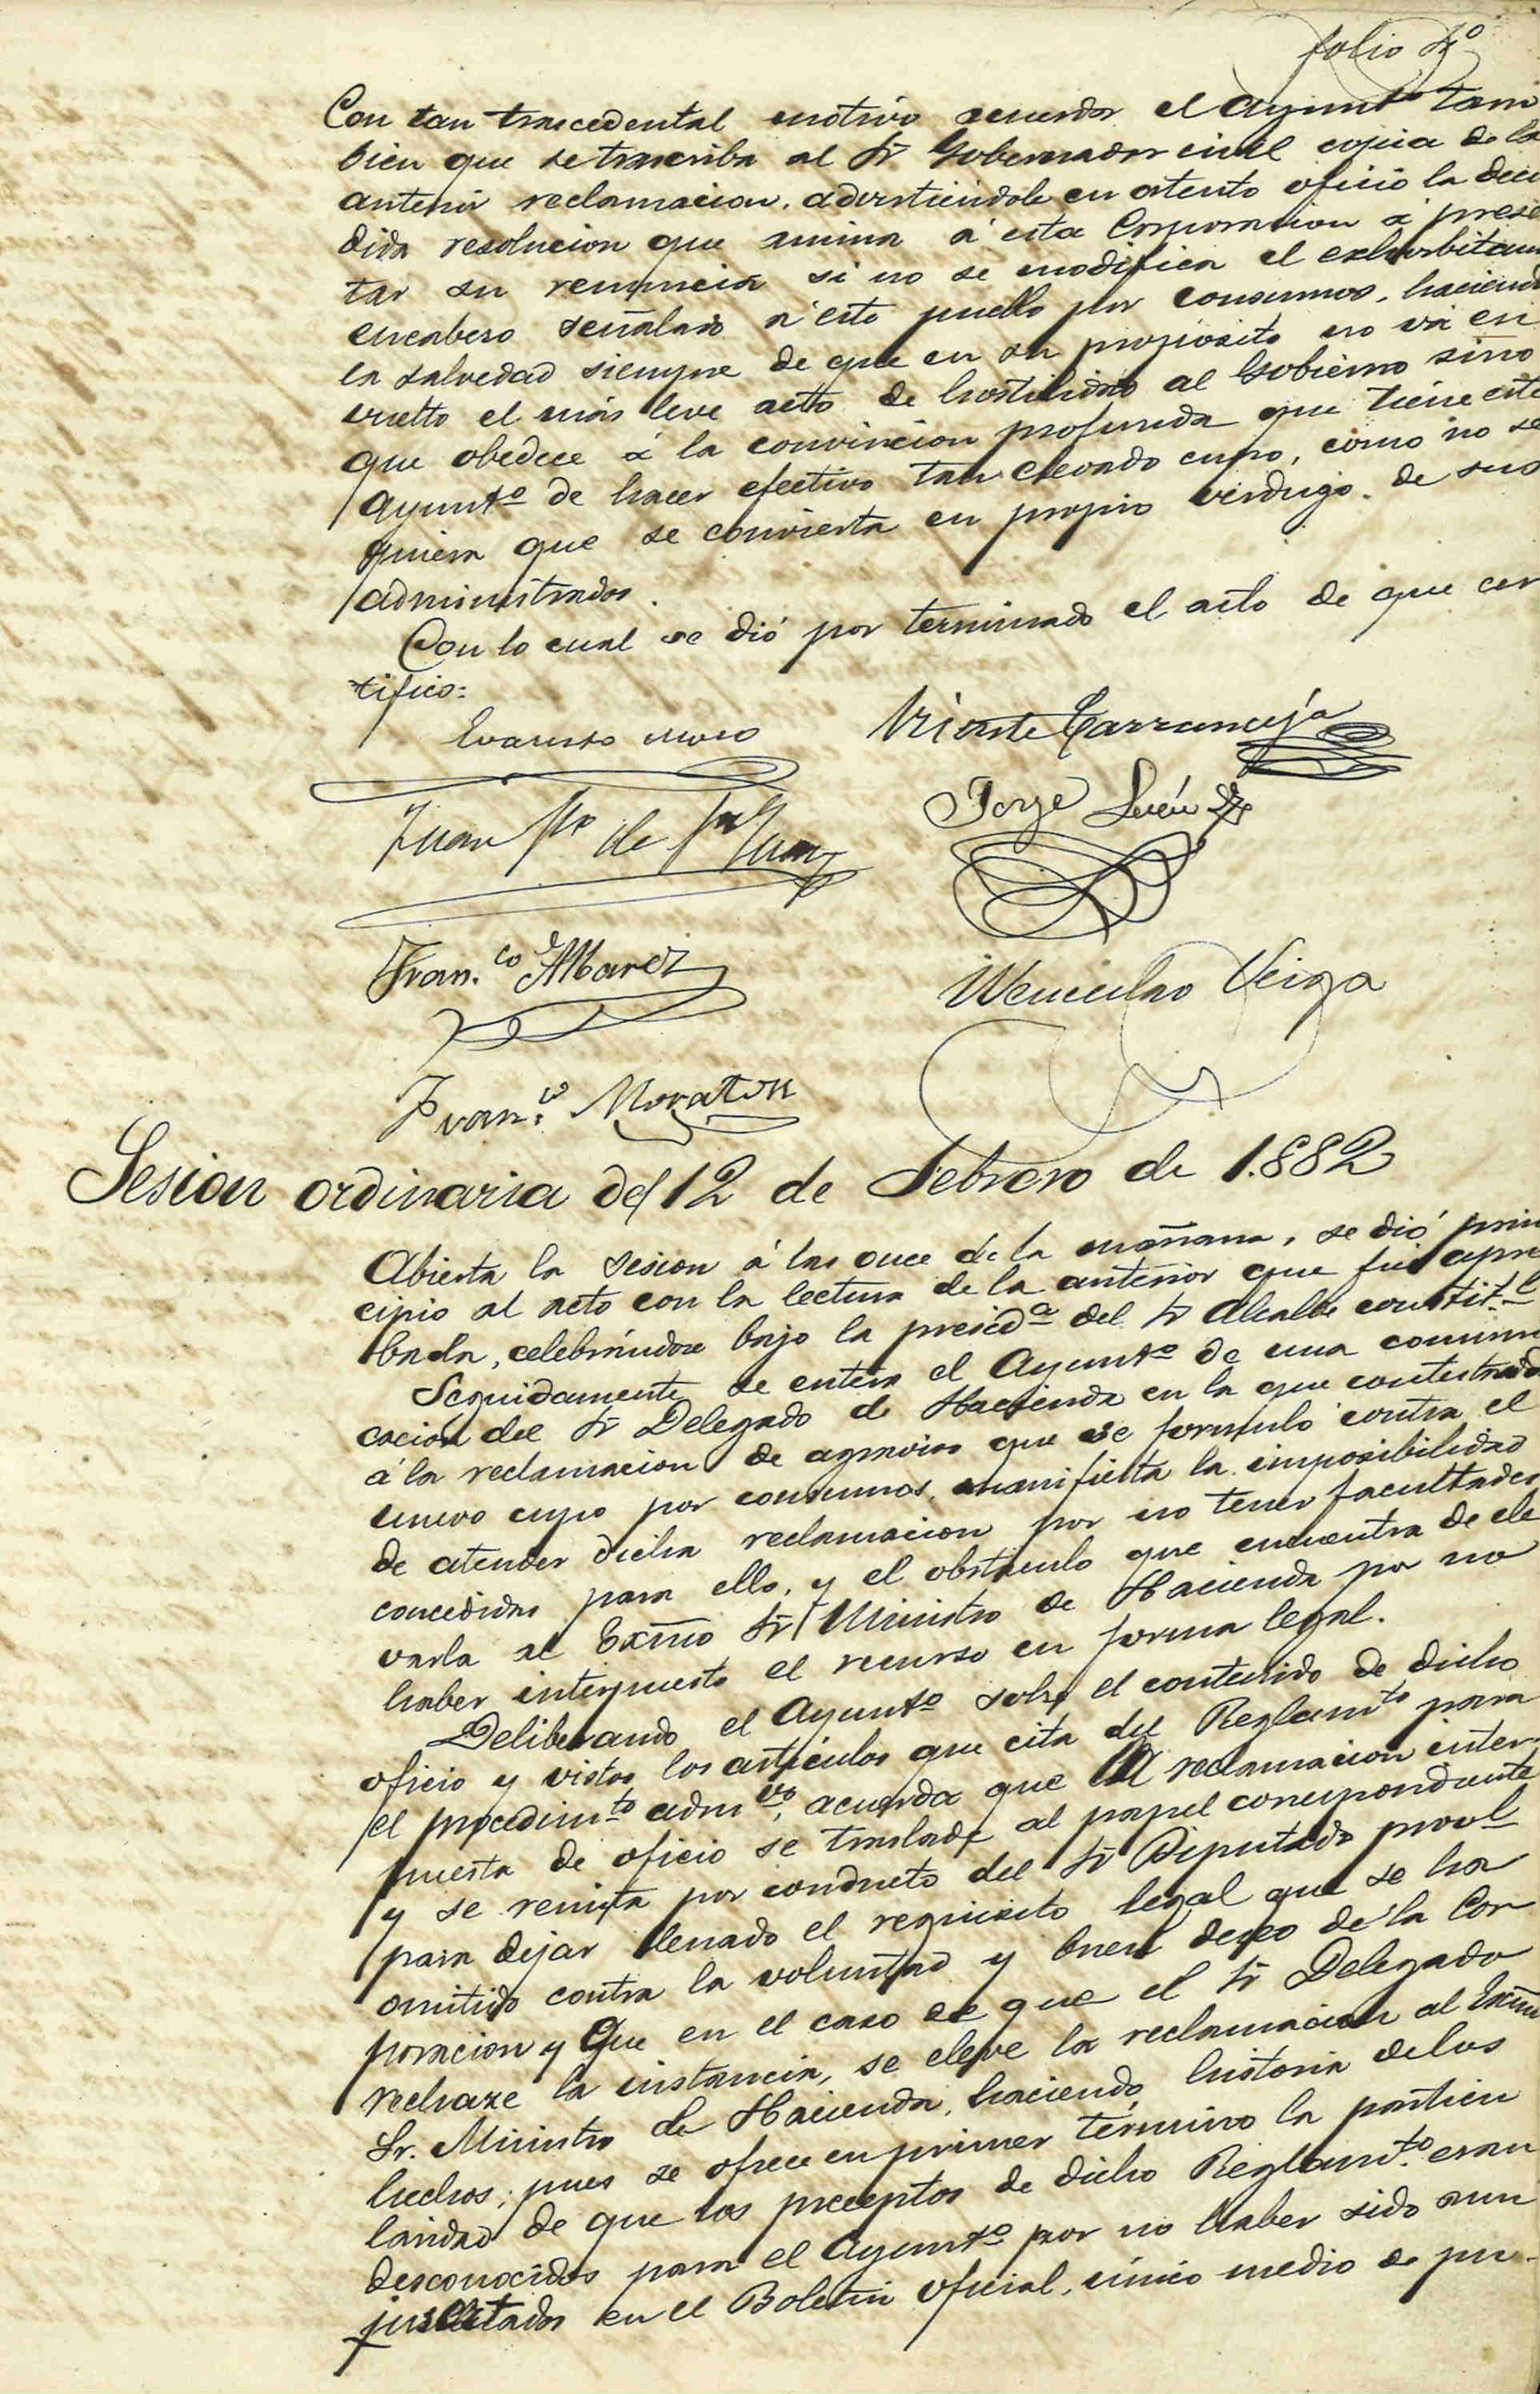 folio 4º
Con tan trascedental motivo acuerda el Ayuntº tam
bien que se trascriba al Sr Gobernador civil copia de la
anterior reclamacion, advirtiendole en atento oficio la deci
dida resolucion que anima á esta Corporacion á presen
tar su renuncia si no se modifica el exhorbitan
encabezo señalado á este pueblo por consumos, haciend
la salvedad siempre de que en su proposito no vá en
vuelto el más leve acto de hostilidad al Gobierno sino
que obedece á la convincion profunda que tiene este
Ayuntº de hacer efectivo tan elevado cupo, como no se
quiera que se convierta en propio verdugo de sus
administrados.
Con lo cual se dió por terminado el acto de que cer
tifico:
Evaristo Vicente Carranceja
Juan de Jorge
Fran.co Alvarez Wenceslao Veiga
Fran.co Moraton
Sesion ordinaria del 12 de Febrero de 1.882
Abierta la sesion á las once de la mañana, se dió prin
cipio al acto con la lectura de la anterior que fué apro
bada, celebrándose bajo la presidª del Sr Alcalde constit.l
Seguidamente se entera el Ayuntº de una comuni
cacion del Sr Delegado de Hacienda en la que contestando
á la reclamacion de agravios que se formuló contra el
nuevo cupo por consumos, manifiesta la imposibilidad
de atender dicha reclamacion por no tener facultades
concedidas para ello, y el obstaculo que encuentra de ele
varla al Exmo Sr Ministro de Hacienda por no
haber interpuesto el recurso en forma legal.
Deliberando el Ayuntº sobre el contenido de dicho
oficio y vistos los artículos que cita del Reglamto para
el procedimto admvo, acuerda que la reclamacion inter-
puesta de oficio se traslade al papel correspondiente
y se remita por conducto del Sr Diputado provl
para dejar llenado el requisito legal que se ha
omitido contra la voluntad y buen deseo de la Cor
poracion y que en el caso de que el Sr Delegado
rechaze la instancia, se eleve la reclamacion al Exmo
Sr. Ministro de Hacienda, haciendo historia de los
hechos; pues se ofrece en primer término la particu
laridad de que los preceptos de dicho Reglamto eran
desconocidos para el Ayuntº por no haber sido aun
insertados en el Boletin oficial, único medio de pu-